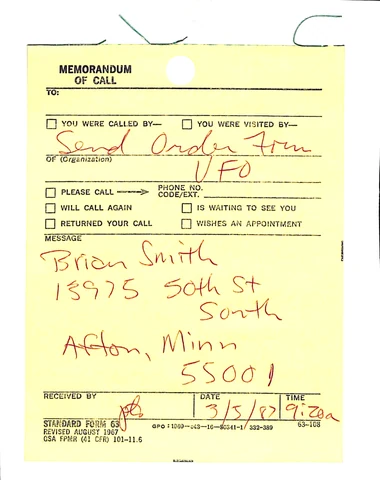 MEMORANDUM
OF CALL
TO:
YOU WERE CALLED BY— YOU WERE VISITED BY—
Send Order Form
OF (Organization)
UFO
PLEASE CALL PHONE NO.
CODE/EXT.
WILL CALL AGAIN IS WAITING TO SEE YOU
RETURNED YOUR CALL WISHES AN APPOINTMENT
MESSAGE
Brian Smith
15975 50th St
South
Afton, Minn
55001
RECEIVED BY DATE TIME
3/5/87 9:20a
STANDARD FORM 63 63-108
REVISED AUGUST 1967
GSA FPMR (41 CFR) 101-11.6